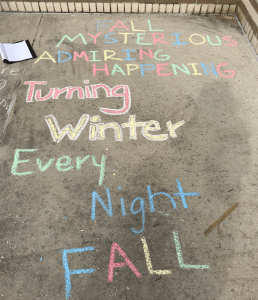 FALL
MYSTERIOUS
ADMIRING
HAPPENING
Turning
Winter
Every
Night
FALL